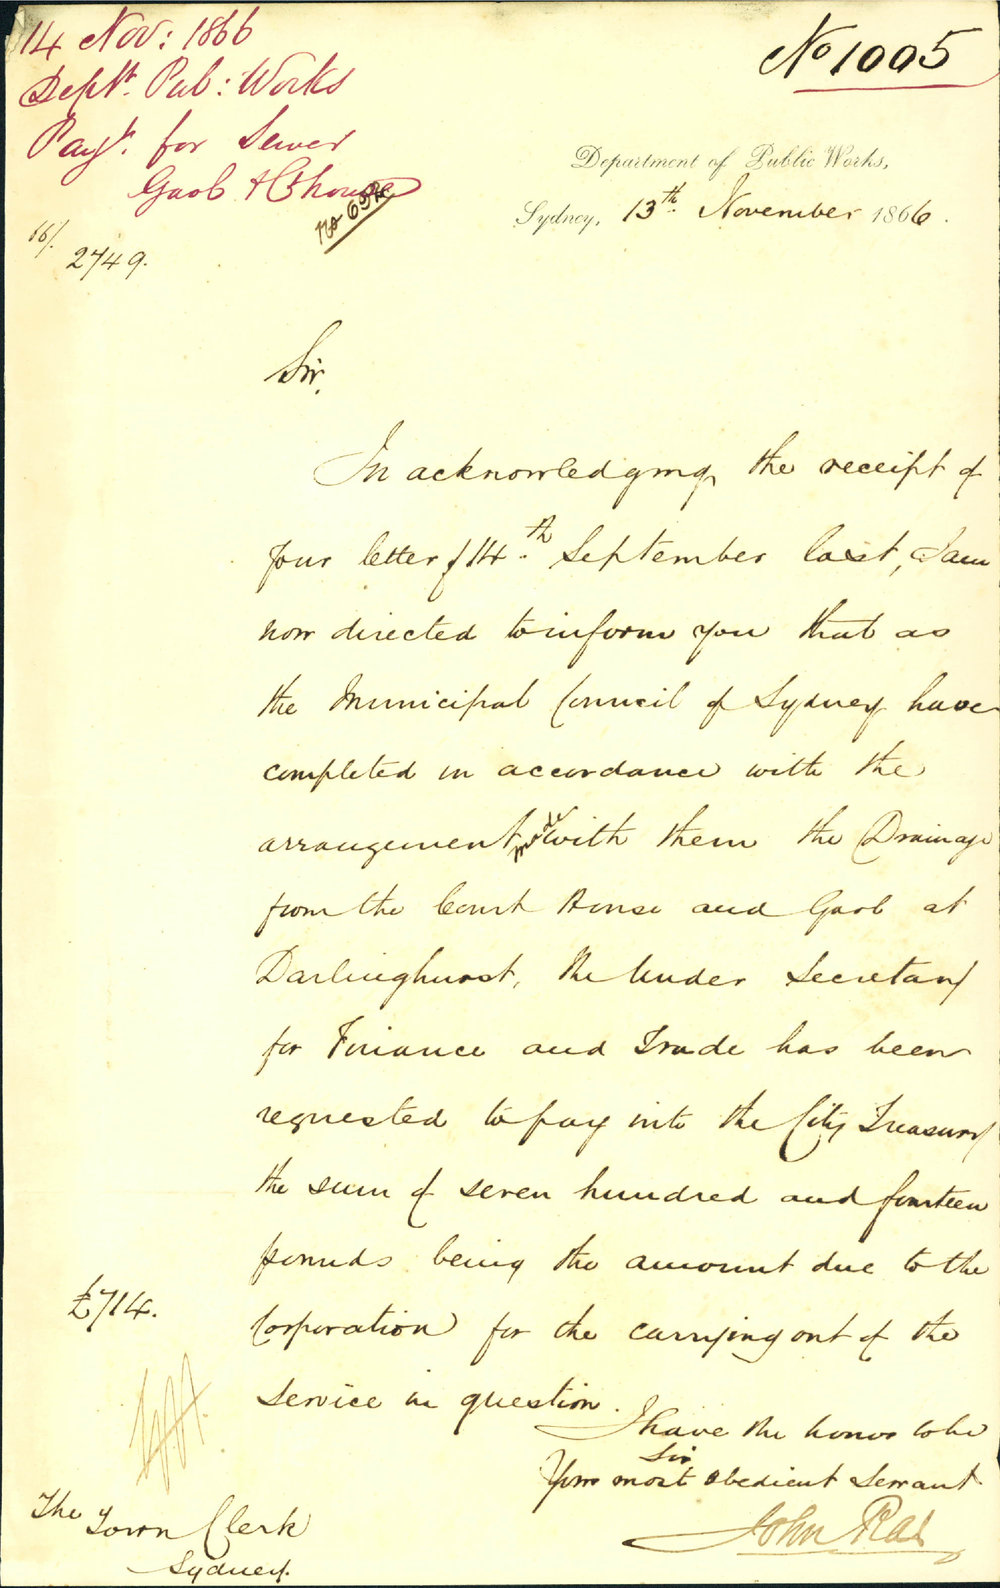 14 Nov: 1866
Dept. Pub: Works
Payt. for Sewer
Gaol & Cthouse
No 1005
Department of Public Works,
Sydney, 13th. November 1866.
16/.
2749.
Sir,
In acknowledging the receipt of
your letter of 14th. September last, I am
now directed to inform you that as
the Municipal Council of Sydney have
completed in accordance with the
arrangement made with them the Drainage
from the Court House and Gaol at
Darlinghurst, the Under Secretary
for Finance and Trade has been
requested to pay into the City Treasury
the sum of seven hundred and fourteen
pounds being the amount due to the
£714.
Corporation for the carrying out of the
Service in question.
I have the honor to be
Sir
Your most obedient Servant
John Rae
The
Town Clerk
Sydney.